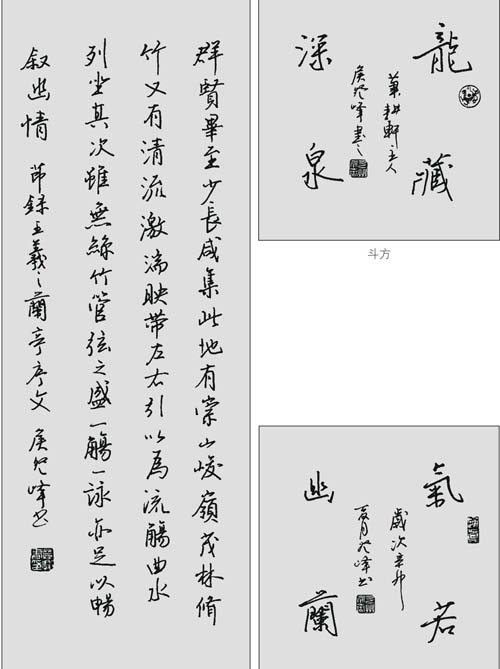 群賢畢至少長咸集此地有崇山峻嶺茂林修
竹又有清流激湍映帶左右引以為流觴曲水
列坐其次雖無絲竹管弦之盛一觴一詠亦足以暢
叙幽情 節錄王羲之蘭亭序文 侯峰书
龍藏
深泉
耕軒主人
侯峰書之
斗方
氣若
幽蘭
歲次辛卯
夏月峰书